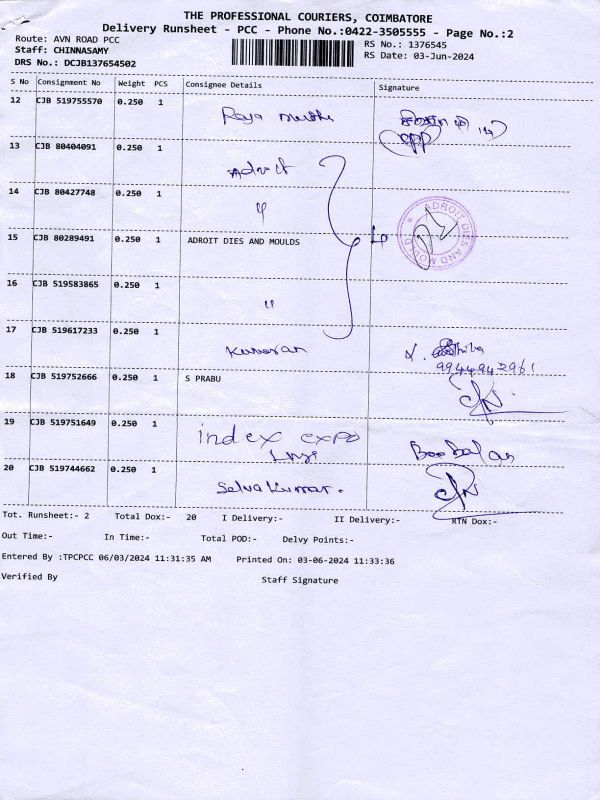 THE PROFESSIONAL COURIERS, COIMBATORE
Delivery Runsheet - PCC - Phone No.:0422-3505555 - Page No.:2
Route: AVN ROAD PCC
RS No.: 1376545
Staff: CHINNASAMY
RS Date: 03-Jun-2024
DRS No.: DCJB137654502
S No Consignment No Weight PCS Consignee Details Signature
12 CJB 519755570 0.250 1 Raja
13 CJB 80404091 0.250 1
14 CJB 80427748 0.250 1 "
15 CJB 80289491 0.250 1 ADROIT DIES AND MOULDS
ADROIT DIES AND MOULDS
16 CJB 519583865 0.250 1 "
17 CJB 519617233 0.250 1 Kumaran
18 CJB 519752666 0.250 1 S PRABU
19 CJB 519751649 0.250 1 index expo
Boobalan
20 CJB 519744662 0.250 1 Selva Kumar.
Tot. Runsheet:- 2 Total Dox:- 20 I Delivery:- II Delivery:- RTN Dox:-
Out Time:- In Time:- Total POD:- Delvy Points:-
Entered By :TPCPCC 06/03/2024 11:31:35 AM Printed On: 03-06-2024 11:33:36
Verified By Staff Signature